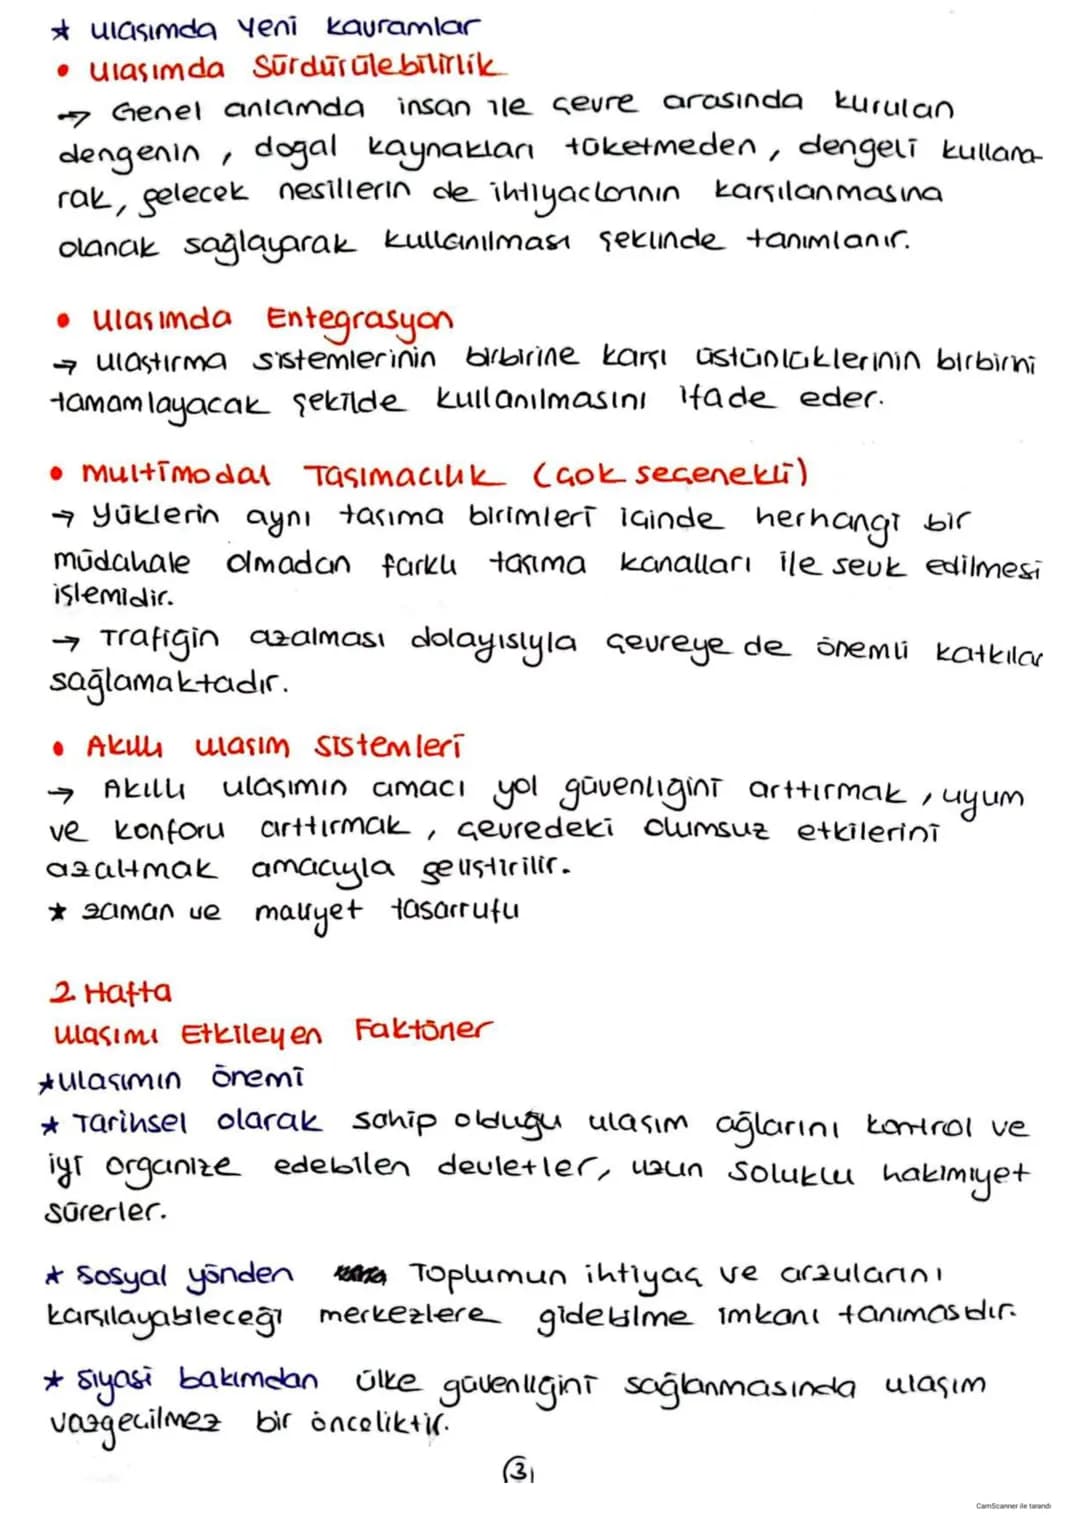 ★ Ulaşımda Yeni Kavramlar
• Ulaşımda Sürdürülebilirlik
→ Genel anlamda insan ile çevre arasında kurulan
dengenin, doğal kaynakları tüketmeden, dengeli kullana-
rak, gelecek nesillerin de ihtiyaçlarının karşılanmasına
olanak sağlayarak kullanılması şeklinde tanımlanır.
• Ulaşımda Entegrasyon
→ Ulaştırma sistemlerinin birbirine karşı üstünlüklerinin birbirini
tamamlayacak şekilde kullanılmasını ifade eder.
• Multimodal Taşımacılık (çok seçenekli)
→ Yüklerin aynı taşıma birimleri içinde herhangi bir
müdahale olmadan farklı taşıma kanalları ile sevk edilmesi
işlemidir.
→ Trafiğin azalması dolayısıyla çevreye de önemli katkılar
sağlamaktadır.
• Akıllı ulaşım sistemleri
→ Akıllı ulaşımın amacı yol güvenliğini arttırmak, uyum
ve konforu arttırmak, çevredeki olumsuz etkilerini
azaltmak amacıyla geliştirilir.
★ zaman ve maliyet tasarrufu
2 Hafta
Ulaşımı Etkileyen Faktörler
★Ulaşımın önemi
★ Tarihsel olarak sahip olduğu ulaşım ağlarını kontrol ve
iyi organize edebilen devletler, uzun soluklu hakimiyet
sürerler.
★ Sosyal yönden Toplumun ihtiyaç ve arzularını
karşılayabileceği merkezlere gidebilme imkanı tanımasıdır.
★ Siyasi bakımdan ülke güvenliğini sağlanmasında ulaşım
vazgeçilmez bir önceliktir.
3
CamScanner ile tarandı